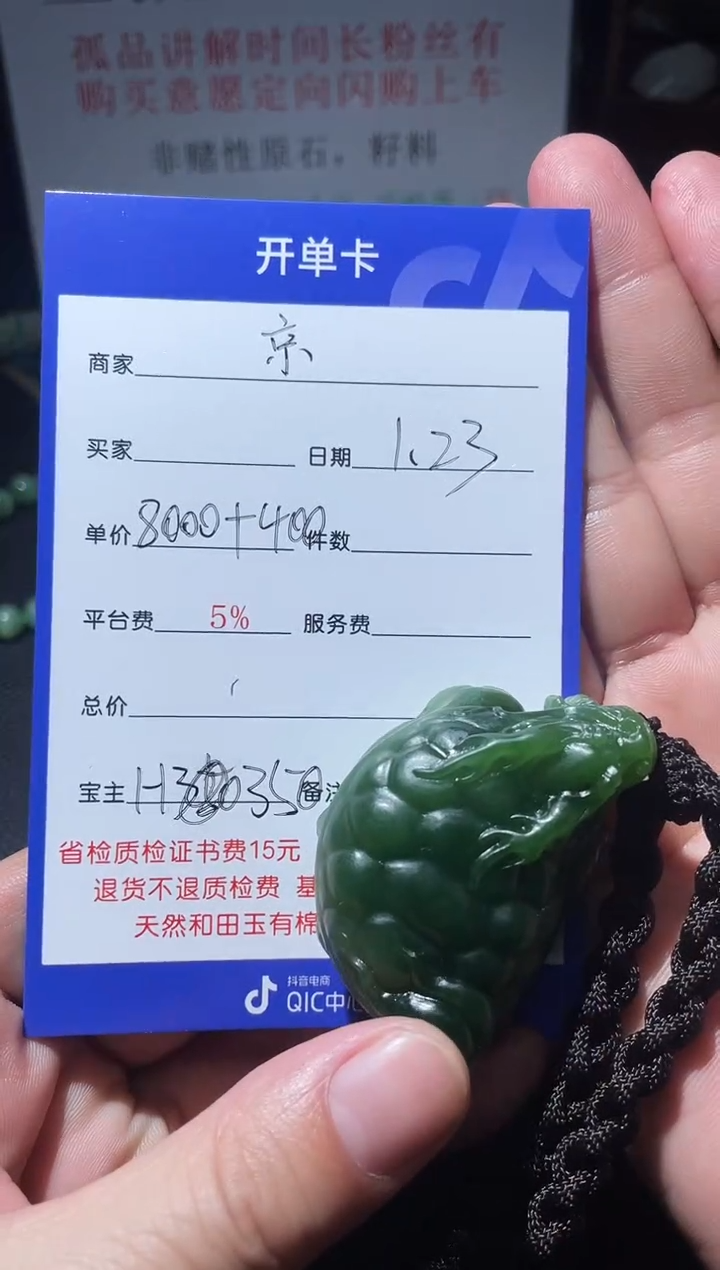 孤品讲解时间长粉丝有
购买意愿定向闪购上车
非赌性原石，籽料
开单卡
商家 京
买家 日期 1.23
单价 8000+400 件数
平台费 5% 服务费
总价
宝主 备
省检质检证书费15元
退货不退质检费
天然和田玉有棉
抖音电商
QIC中心